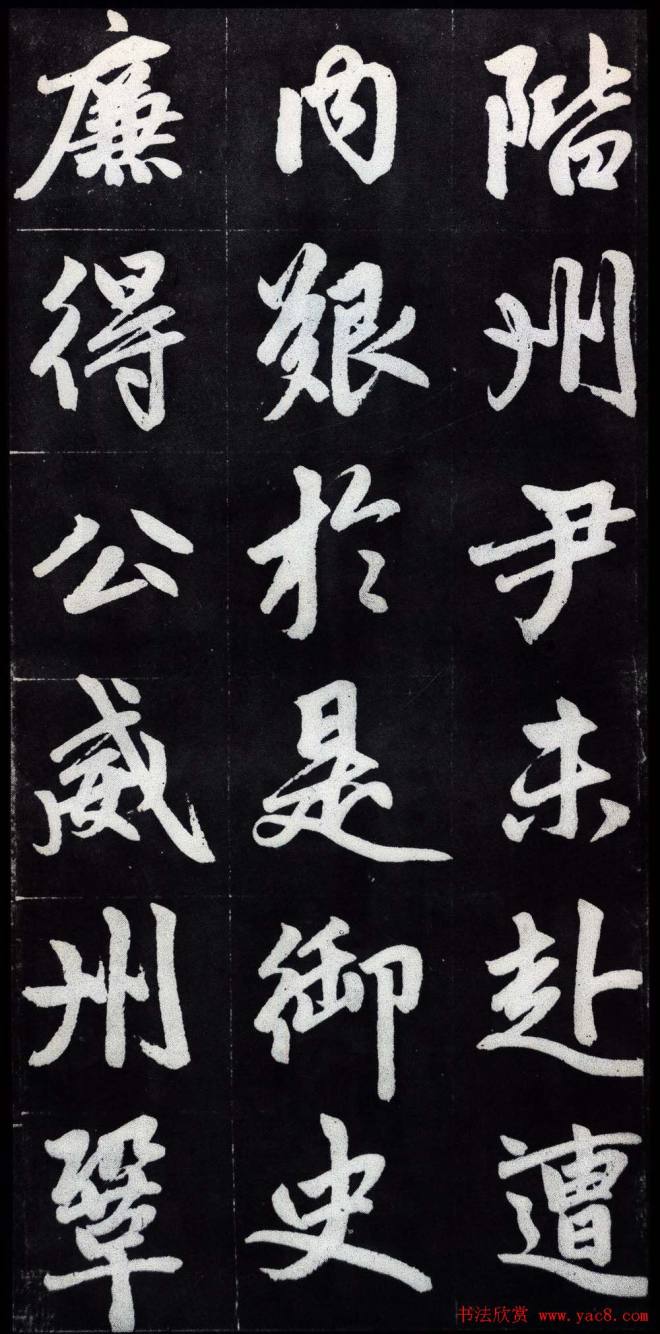 階州尹未赴遭
内艱於是御史
廉得公威州鞏
书法欣赏 www.yac8.com